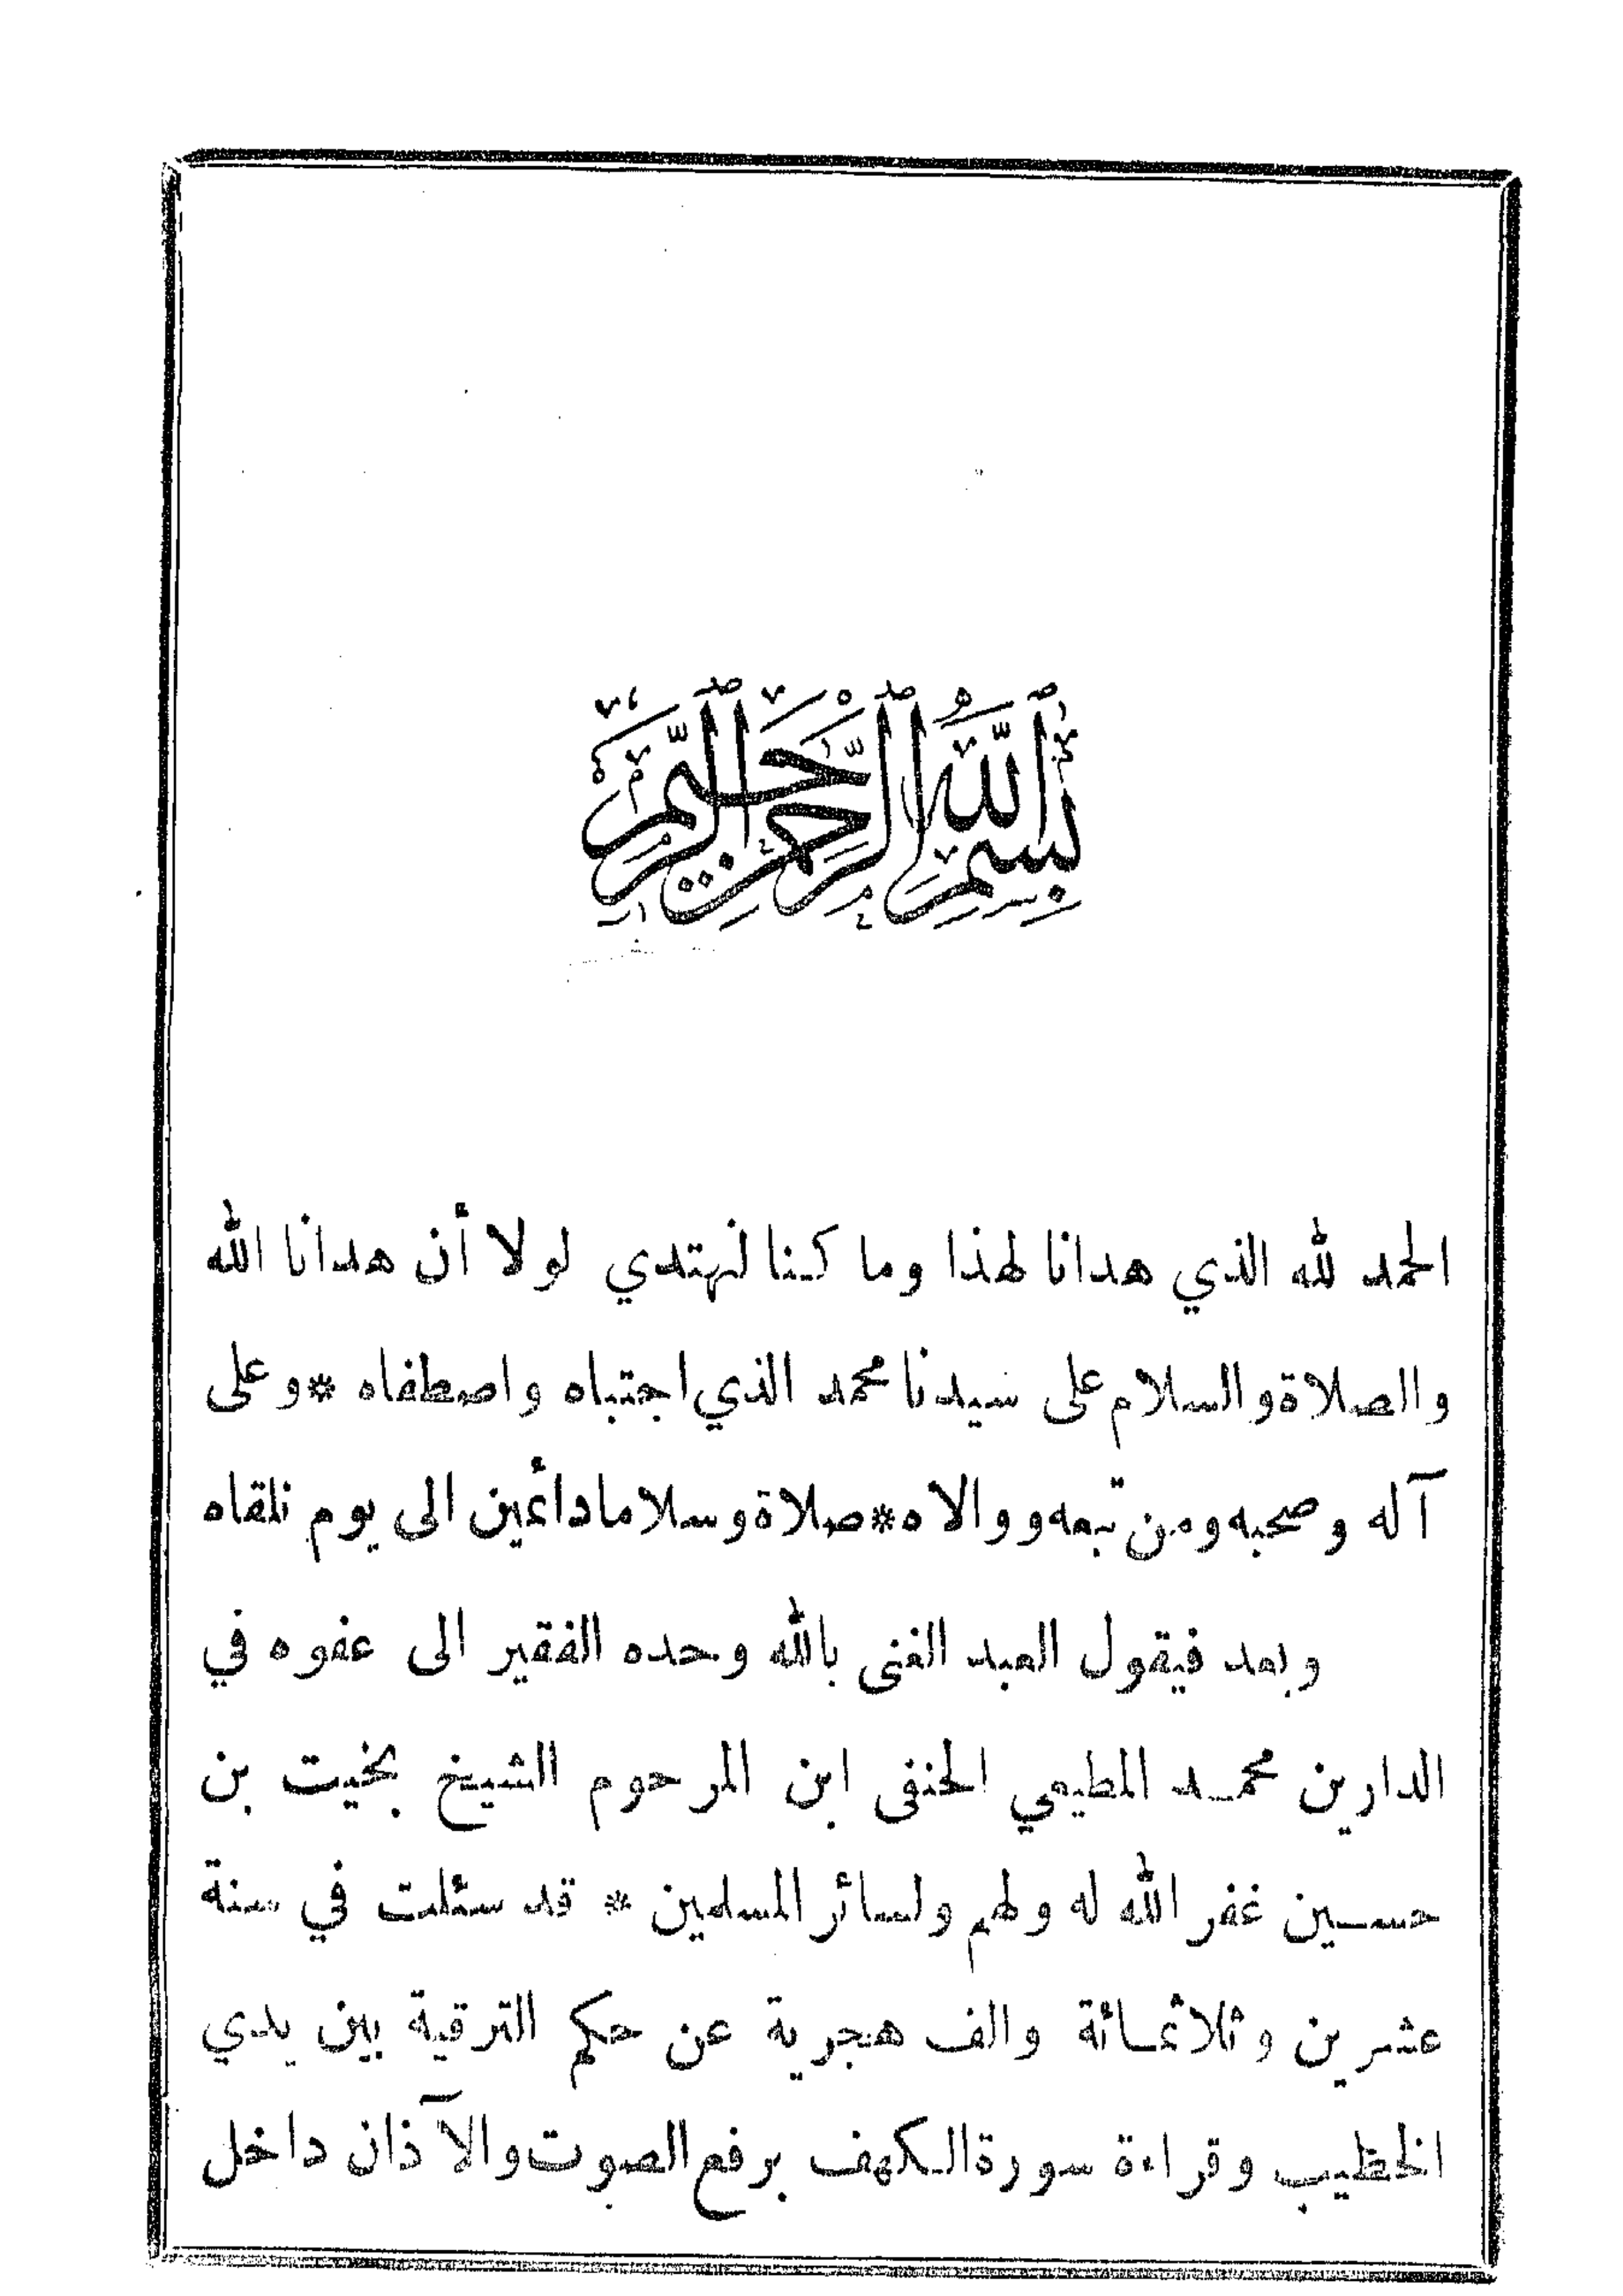 بِسْمِ ٱللَّهِ ٱلرَّحْمَٰنِ ٱلرَّحِيمِ
الحمد لله الذي هدانا لهذا وما كنا لنهتدي لولا أن هدانا الله
والصلاة والسلام على سيدنا محمد الذي اجتباه واصطفاه * وعلى
آله وصحبه ومن تبعه ووالاه * صلاة وسلاما دائمين الى يوم نلقاه
وبعد فيقول العبد الغنى بالله وحده الفقير الى عفوه في
الدارين محمد المطيعي الحنفى ابن المرحوم الشيخ بخيت بن
حسين غفر الله له ولهم ولسائر المسلمين * قد سئلت في سنة
عشرين وثلاثمائة والف هجرية عن حكم الترقية بين يدي
الخطيب وقراءة سورة الكهف برفع الصوت والآذان داخل